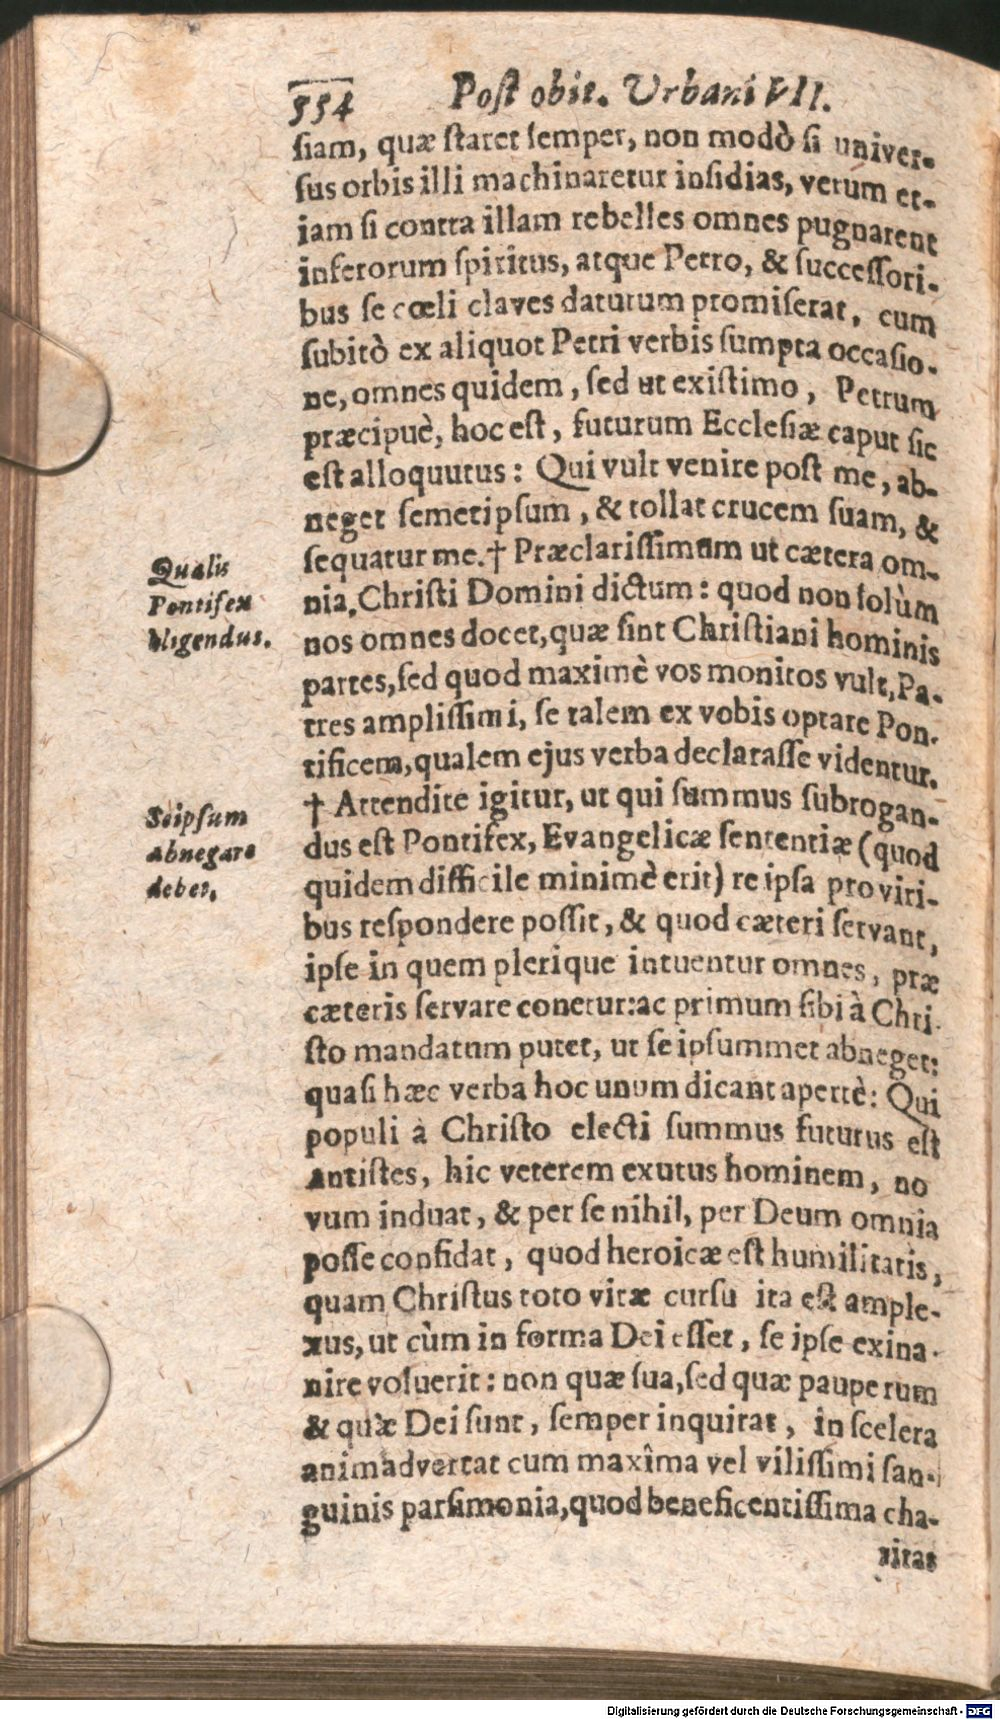 554 Post obit. Urbani VII.
siam, quæ staret semper, non modò si univer-
sus orbis illi machinaretur insidias, verum et-
iam si contra illam rebelles omnes pugnarent
inferorum spiritus, atque Petro, & successori-
bus se cœli claves daturum promiserat, cum
subitò ex aliquot Petri verbis sumpta occasio-
ne, omnes quidem, sed ut existimo, Petrum
præcipuè, hoc est, futurum Ecclesiæ caput sic
est alloquutus: Qui vult venire post me, ab-
neget semetipsum, & tollat crucem suam, &
sequatur me. † Præclarissimum ut cætera om-
nia, Christi Domini dictum: quod non solùm
nos omnes docet, quæ sint Christiani hominis
partes, sed quod maximè vos monitos vult, Pa-
tres amplissimi, se talem ex vobis optare Pon-
tificem, qualem ejus verba declarasse videntur.
† Attendite igitur, ut qui summus subrogan-
dus est Pontifex, Evangelicæ sententiæ (quod
quidem difficile minimè erit) re ipsa pro viri-
bus respondere possit, & quod cæteri servant,
ipse in quem plerique intuentur omnes, præ
cæteris servare conetur: ac primum sibi à Chri-
sto mandatum putet, ut se ipsummet abneget:
quasi hæc verba hoc unum dicant apertè: Qui
populi à Christo electi summus futurus est
Antistes, hic veterem exutus hominem, no
vum induat, & per se nihil, per Deum omnia
posse confidat, quod heroicæ est humilitatis,
quam Christus toto vitæ cursu ita est ample-
xus, ut cùm in forma Dei esset, se ipse exina-
nire voluerit: non quæ sua, sed quæ pauperum
& quæ Dei sunt, semper inquirat, in scelera
animadvertat cum maxîma vel vilissimi san-
guinis parsimonia, quod beneficentissima cha-
ritas
Qualis
Pontifex
eligendus.
Seipsum
abnegare
debet.
Digitalisierung gefördert durch die Deutsche Forschungsgemeinschaft - DFG